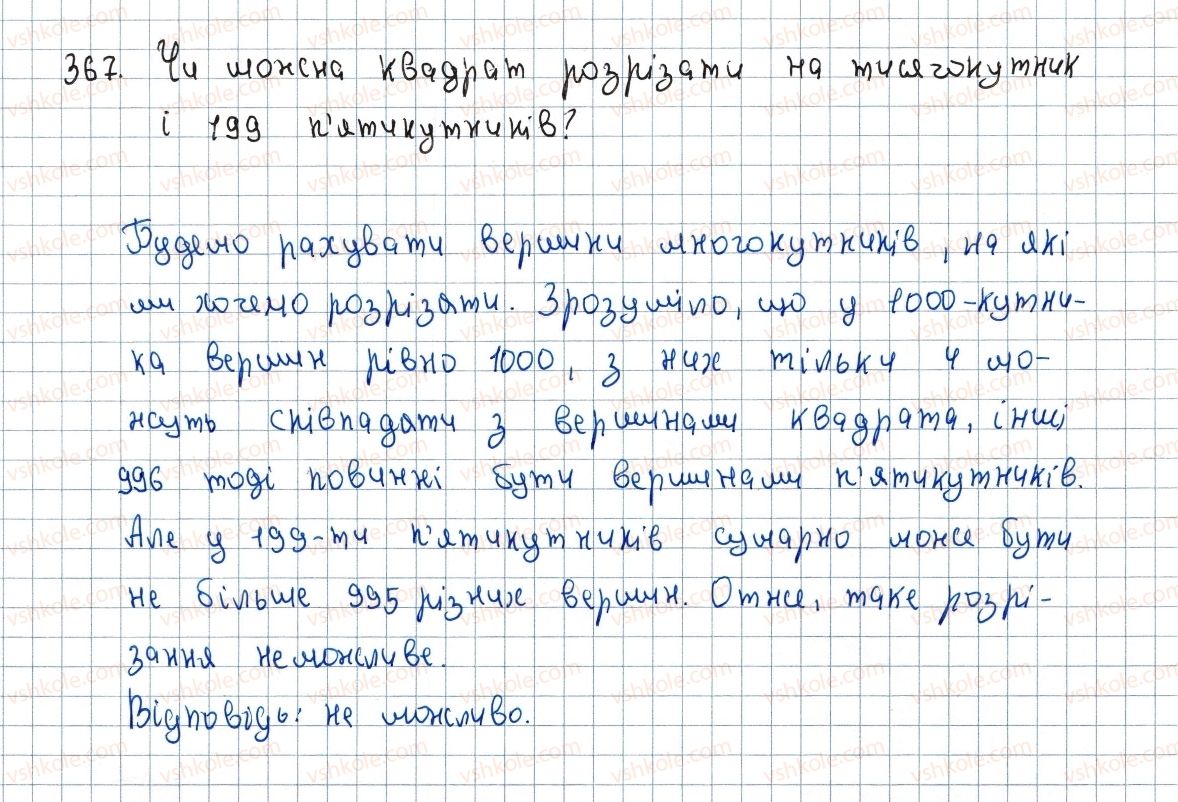 367. Чи можна квадрат розрізати на тисячокутник
і 199 п'ятикутників?
Будемо рахувати вершини многокутників, на які
ми хочемо розрізати. Зрозуміло, що у 1000-кутни-
ка вершин рівно 1000, з них тільки 4 мо-
жуть співпадати з вершинами квадрата, інші
996 тоді повинні бути вершинами п'ятикутників.
Але у 199-ти п'ятикутників сумарно може бути
не більше 995 різних вершин. Отже, таке розрі-
зання неможливе.
Відповідь: не можливо.